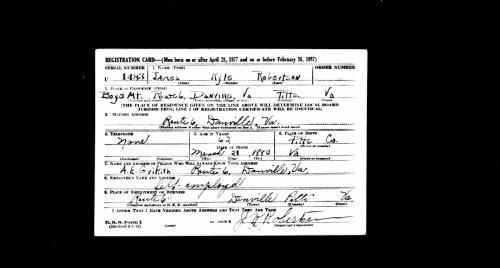 REGISTRATION CARD—(Men born on or after April 28, 1877 and on or before February 16, 1897)
SERIAL NUMBER 1. NAME (Print) ORDER NUMBER
U 1483 James Kyle Robertson
(First) (Middle) (Last)
2. PLACE OF RESIDENCE (Print)
Boyd Mt. Route 6, Danville, Va Pitts. Va
(Number and street) (Town, township, village, or city) (County) (State)
[THE PLACE OF RESIDENCE GIVEN ON THE LINE ABOVE WILL DETERMINE LOCAL BOARD
JURISDICTION; LINE 2 OF REGISTRATION CERTIFICATE WILL BE IDENTICAL]
3. MAILING ADDRESS
Route 6, Danville, Va.
(Mailing address if other than place indicated on line 2. If same insert word same)
4. TELEPHONE 5. AGE IN YEARS 6. PLACE OF BIRTH
None 62 Pitts Co.
DATE OF BIRTH (Town or county)
March 28 1880 Va
(Exchange) (Number) (Mo.) (Day) (Yr.) (State or country)
7. NAME AND ADDRESS OF PERSON WHO WILL ALWAYS KNOW YOUR ADDRESS
A.E. Griffith Route 6, Danville, Va.
8. EMPLOYER'S NAME AND ADDRESS
Self employed
9. PLACE OF EMPLOYMENT OR BUSINESS
Route 6 Danville Pitts Va.
(Number and street or R. F. D. number) (Town) (County) (State)
I AFFIRM THAT I HAVE VERIFIED ABOVE ANSWERS AND THAT THEY ARE TRUE.
D. S. S. Form 1
(Revised 4-1-42) (Registrant's signature)
J K Robertson